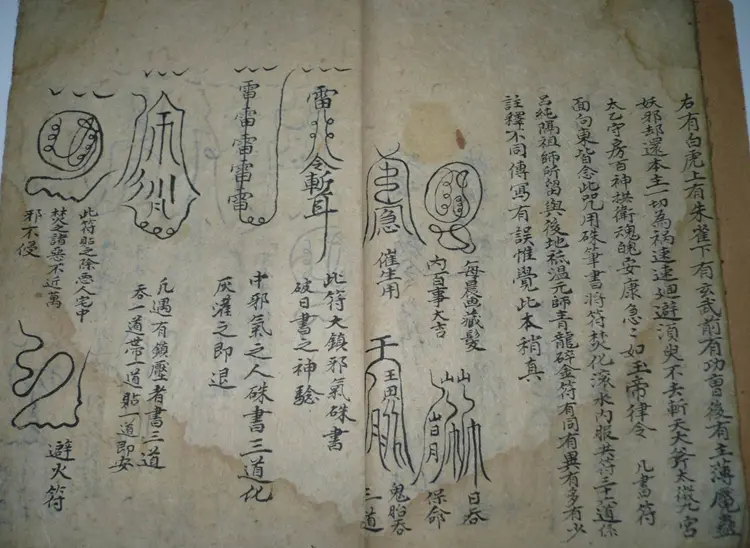 右有白虎上有朱雀下有玄武前有功曹後有主薄魘蠱
妖邪却還本主一切為祸速速迴避須臾不去斬天大斧太微九宮
太乙守房百神拱衛魂魄安康急〻如玉帝律令 凡書符
面向東皆念此咒用硃筆書將符焚化滚水内服共符三十一道係
吕純陽祖師所留與後地祇温元帥青龍碎金符有同有異有多有少
註釋不同傳寫有誤惟覺此本稍真
每晨画藏髮
内百事大吉
急
催生用
日吞
保命
鬼胎吞
三道
雷
令斬耳
此符大鎮邪氣硃書
破日書之神驗
雷雷雷雷雷
中邪氣之人硃書三道化
灰灌之即退
凡遇有鎖壓者書三道
吞一道带一道貼一道即安
此符貼之除惡人宅中
焚之諸惡不近萬
邪不侵
避火符